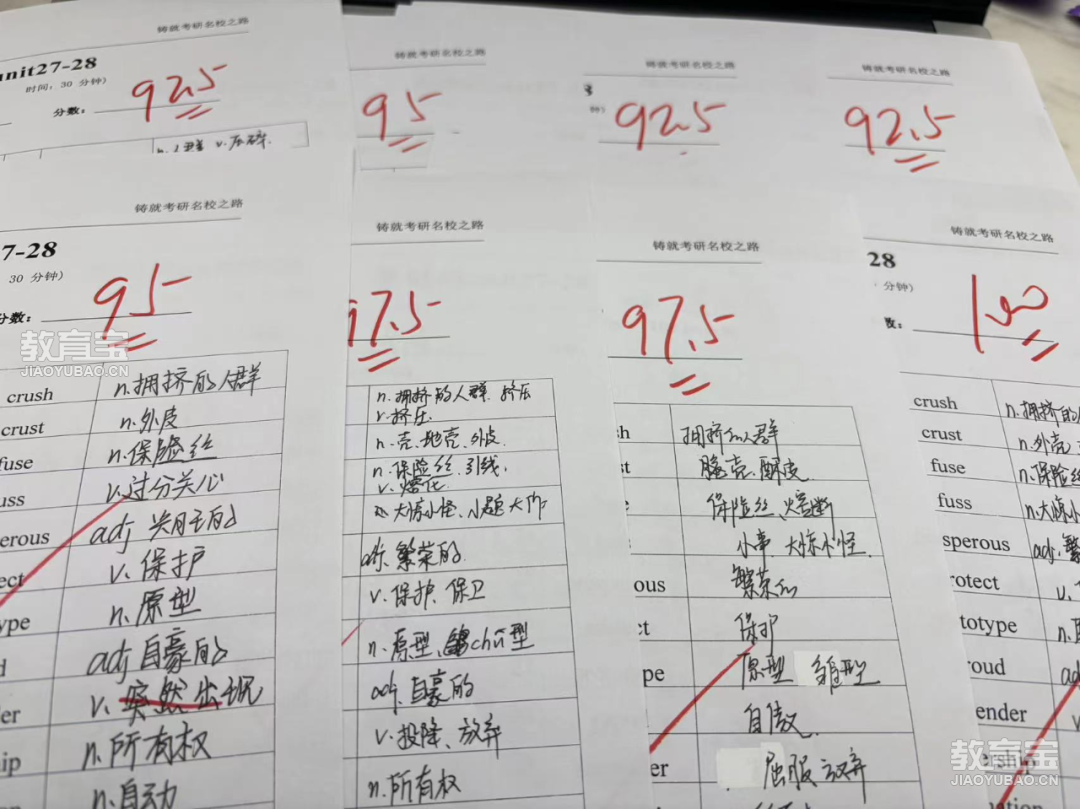 铸就考研名校之路
unit27-28
时间：30 分钟）
分数：
92.5
v.压碎.
铸就考研名校之路
95
铸就考研名校之路
92.5
铸就考研名校之路
92.5
铸就考研名校之路
7-28
30 分钟）
分数：
95
crush n.拥挤的人群
crust n.外皮
fuse n.保险丝
uss v.过分关心
erous adj
ect v.保护
ype n.原型
d adj 自豪的
der v.突然出现
ip n.所有权
n.自动
铸就考研名校之路
97.5
n.拥挤的人群.挤压
v.挤压
n.壳、地壳、外皮.
n.保险丝.引线,
v.熔化
大惊小怪、小题大作
adj.繁荣的.
v.保护.保卫
n.原型、chū型
adj.自豪的
v.投降、放弃
n.所有权
铸就考研名校之路
97.5
sh 拥挤的人群
st 脆壳、酥皮
保险丝、熔断
小事.大惊小怪.
ous 繁荣的
ct 保护
pe 原型 雏型
自傲
er 屈服 放弃
铸就考研名校之路
28
分钟）
数：
100
crush n.拥挤的
crust n.外壳
fuse n.保险丝
fuss n.大惊小
sperous adj.繁
rotect v.
totype n.原
roud ad
ender v
ership
教育宝
JIAOYUBAO.CN
教育宝
JIAOYUBAO.CN